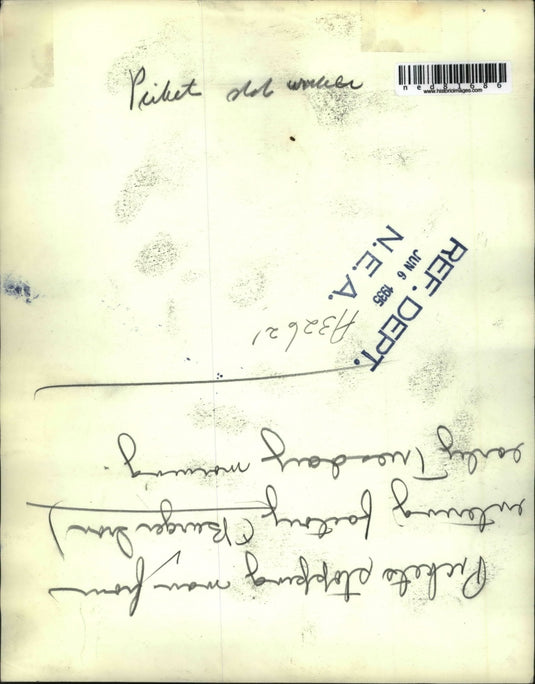 Picket stop worker
ned81686
www.historicimages.com
REF. DEPT.
JUN 6 1935
N.E.A.
A32621
Pickets stopping man from
entering factory (Berger Iron)
early Tuesday morning.